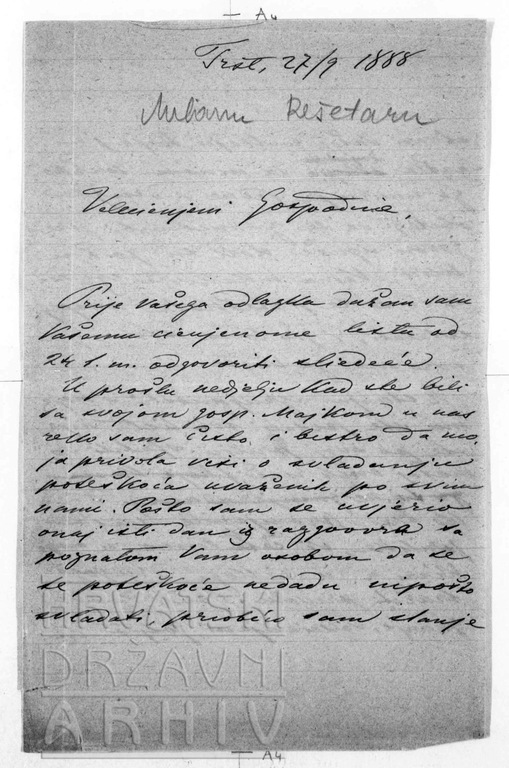 A4
Trst, 27/9 1888
Milanu Rešetaru
Velecienjeni Gospodine,
Prije Vašega odlazka dužan sam
Vašemu cienjenome listu od
24 t. m. odgovoriti sliedeće.
U prošlu nedjelju kad ste bili
sa svojom gosp. Majkom u nas
rekao sam čisto i bistro da mo,
ja privola visi o svladanju
poteškoća uvaženih po svim
nami. Pošto sam se uvjerio
onaj isti dan iz razgovora sa
poznatom Vam osobom da se
te poteškoće nedadu nipošto
svladati, priobćio sam stanje
HRVATSKI
DRŽAVNI
ARHIV
A4